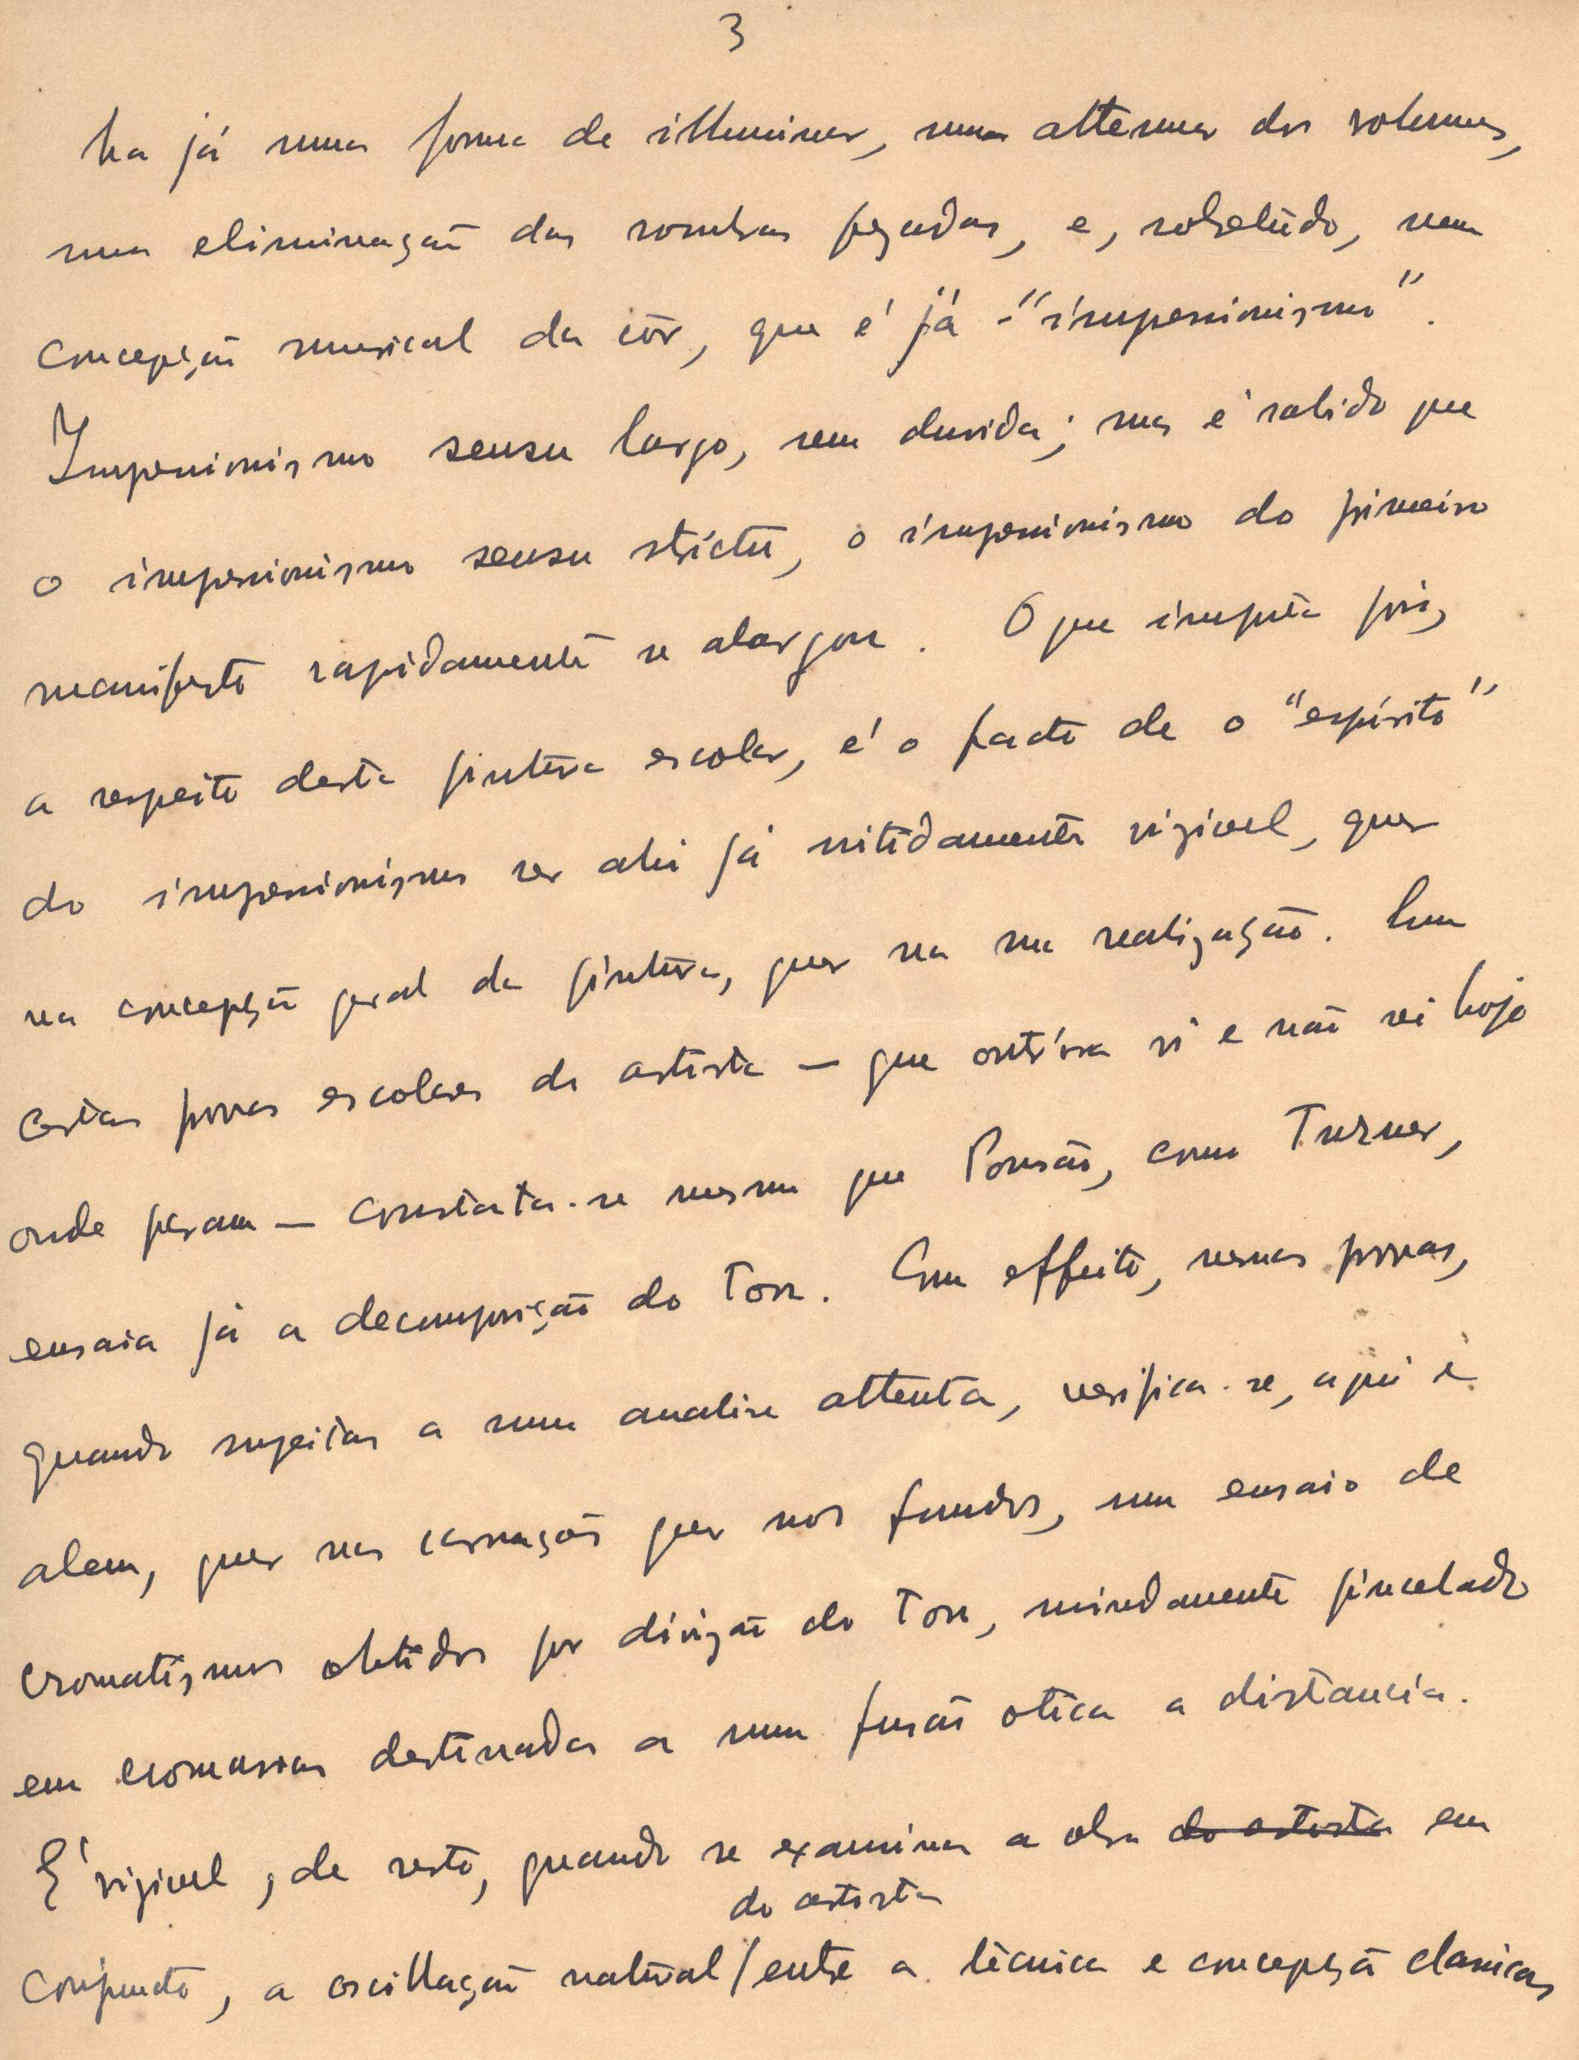 3
ha já uma forma de illuminar, um attenuar dos volumes,
uma eliminação das sombras pezadas, e, sobretudo, uma
concepção musical da côr, que é já - "impressionismo".
Impressionismo sensu largo, sem duvida; mas é sabido que
o impressionismo sensu strictu, o impressionismo do primeiro
manifesto rapidamente se alargou. O que importa pois,
a respeito desta pintura escolar, é o facto de o "espirito"
do impressionismo ser ahi já nitidamente vizivel, quer
na concepção geral da pintura, quer na sua realização. Em
certas provas escolares do artista — que outr'ora vi e não sei hoje
onde param — constata-se mesmo que Pousão, como Turner,
ensaia já a decomposição do Tom. Com effeito, nessas provas,
quando sujeitas a uma analise attenta, verifica-se, aqui e
alem, quer nas carnações quer nos fundos, um ensaio de
cromatismos obtidos por divizão do Tom, miudamente pincelado
em cromas destinadas a uma fusão otica a distancia.
É vizivel, de resto, quando se examina a obra do artista em
do artista
conjuncto, a oscillação natural / entre a técnica e concepção classicas